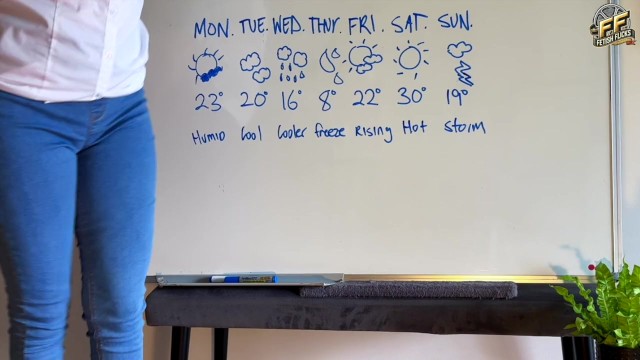 MON. TUE. WED. THUR. FRI. SAT. SUN.
23° 20° 16° 8° 22° 30° 19°
HUMID Cool Cooler freeze Rising Hot Storm
FF
FETISH FLICKS